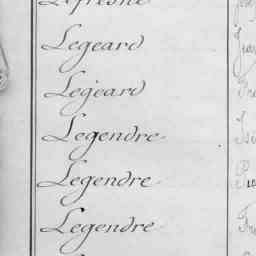 Lefresne
Legeard
Legeard
Legendre
Legendre
Legendre